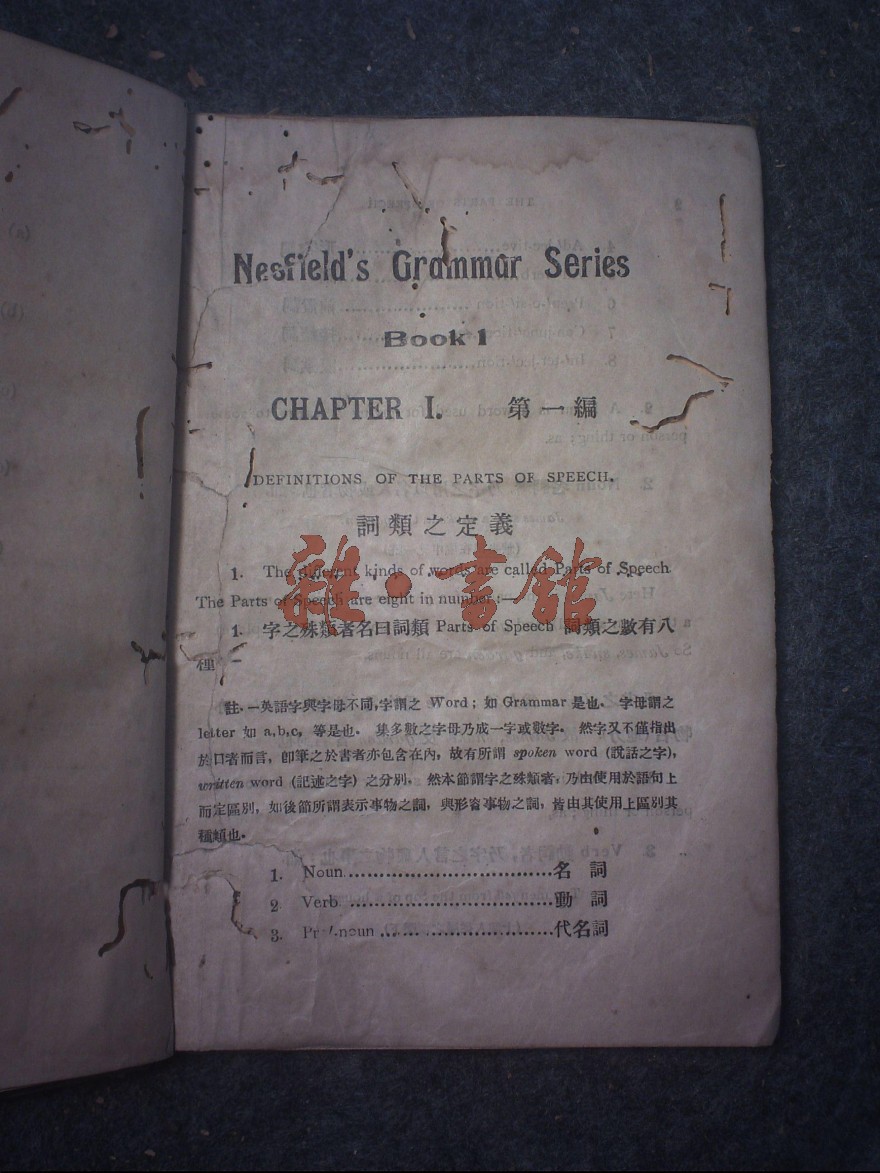 Nesfield's Grammar Series
Book 1
CHAPTER I. 第一編
DEFINITIONS OF THE PARTS OF SPEECH.
詞類之定義
1. The different kinds of words are called Parts of Speech
The Parts of Speech are eight in number:—
1. 字之殊類者名曰詞類 Parts of Speech 詞類之數有八
種
註.—英語字與字母不同,字謂之 Word; 如 Grammar 是也. 字母謂之
letter 如 a,b,c, 等是也. 集多數之字母乃成一字或數字. 然字又不僅指出
於口者而言, 卽筆之於書者亦包含在內, 故有所謂 spoken word (說話之字),
written word (記述之字) 之分別. 然本節謂字之殊類者, 乃由使用於語句上
而定區別, 如後節所謂表示事物之詞, 與形容事物之詞, 皆由其使用上區別其
種類也.
1. Noun ................................名 詞
2 Verb ................................動 詞
3. Pronoun ...........................代名詞
雜·書館